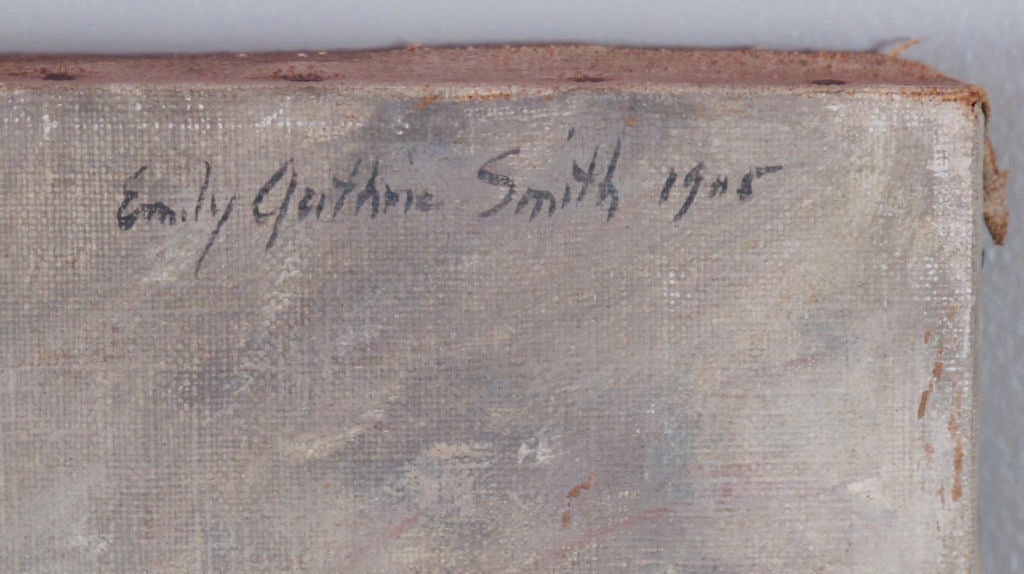 Emily Guthrie Smith 1905